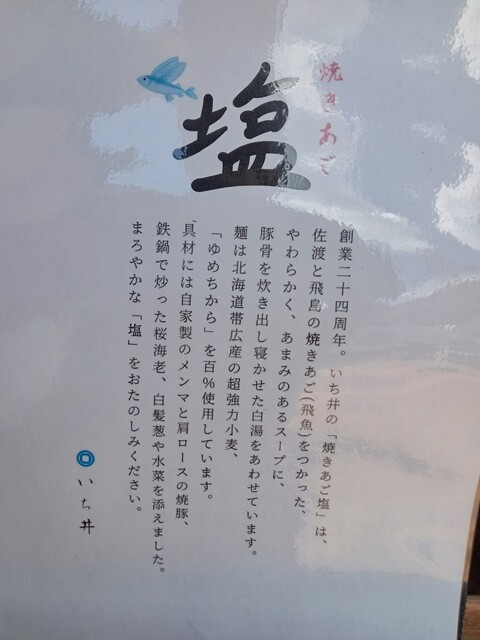 焼きあご
塩
創業二十四周年。いち井の「焼きあご塩」は、
佐渡と飛島の焼きあご(飛魚)をつかった、
やわらかく、あまみのあるスープに、
豚骨を炊き出し寝かせた白湯をあわせています。
麺は北海道帯広産の超強力小麦、
「ゆめちから」を百%使用しています。
具材には自家製のメンマと肩ロースの焼豚、
鉄鍋で炒った桜海老、白髪葱や水菜を添えました。
まろやかな「塩」をおたのしみください。
いち井